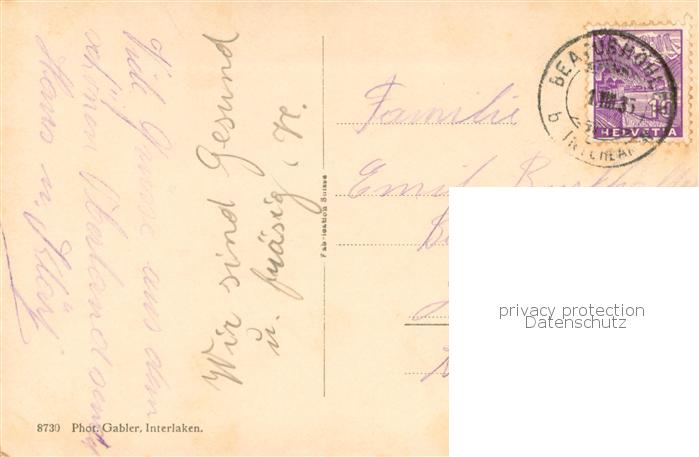 Viele Grüsse aus dem
schönen Oberland sendet
Hans u. Kläri
Wir sind Gesund
u. fräsig N.
Fabrication Suisse
8730 Phot. Gabler, Interlaken.
BEATUSHÖHLEN
INTERLAKEN
HELVETIA
Familie
Emil
privacy protection
Datenschutz